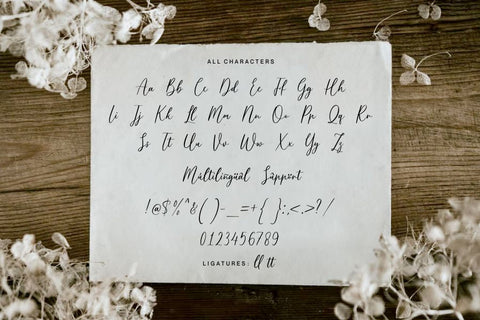 ALL CHARACTERS
Aa Bb Cc Dd Ee Ff Gg Hh
Ii Jj Kk Ll Mm Nn Oo Pp Qq Rr
Ss Tt Uu Vv Ww Xx Yy Zz
Mültilingüäl Süppört
!@$%^&()-_=+{}:;<,>?/
0123456789
LIGATURES: ll tt